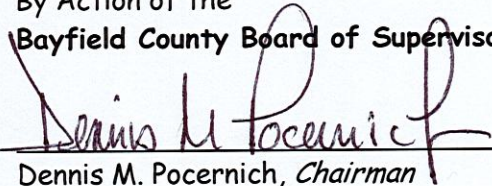 By Action of the
Bayfield County Board of Superviso
Dennis M Pocernich
Dennis M. Pocernich, Chairman